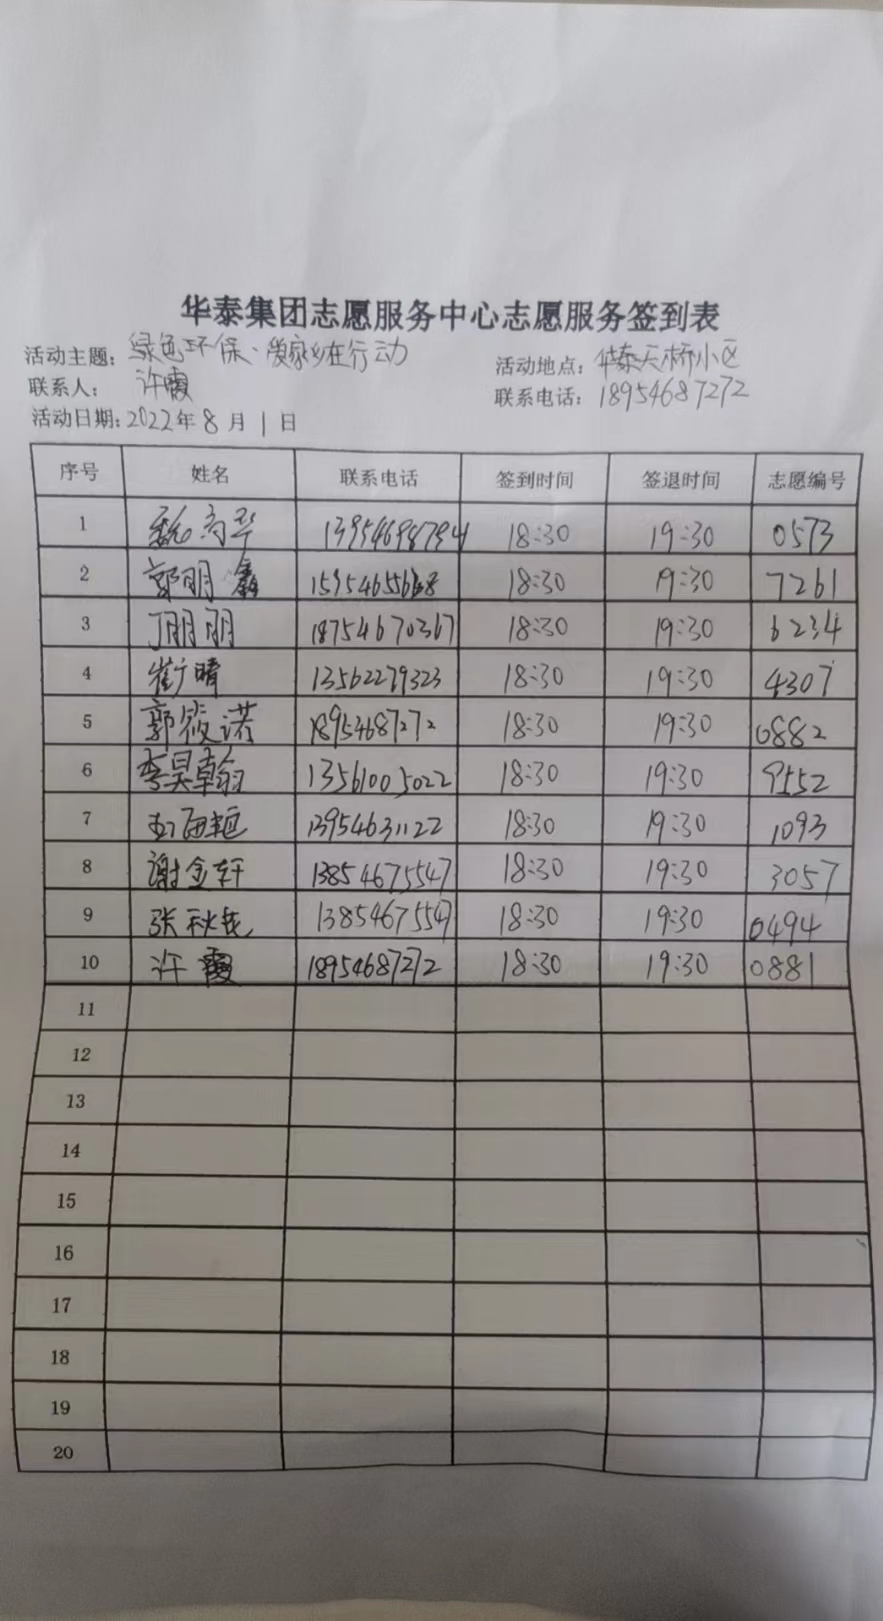 华泰集团志愿服务中心志愿服务签到表
活动主题：绿色环保、爱家乡在行动 活动地点：华泰天桥小区
联系人：许霞 联系电话：18954687272
活动日期：2022年8月1日
序号 姓名 联系电话 签到时间 签退时间 志愿编号
1 魏 华 13954698794 18:30 19:30 0573
2 郭明鑫 18:30 19:30 7261
3 丁朋朋 18754670367 18:30 19:30 6234
4 崔晴 13562279323 18:30 19:30 4307
5 郭筱诺 18954687272 18:30 19:30 0882
6 李昊翰 13561005022 18:30 19:30 9552
7 13954631122 18:30 19:30 1093
8 谢金轩 13854675547 18:30 19:30 3057
9 张秋 13854675547 18:30 19:30 0494
10 许霞 18954687272 18:30 19:30 0881
11
12
13
14
15
16
17
18
19
20